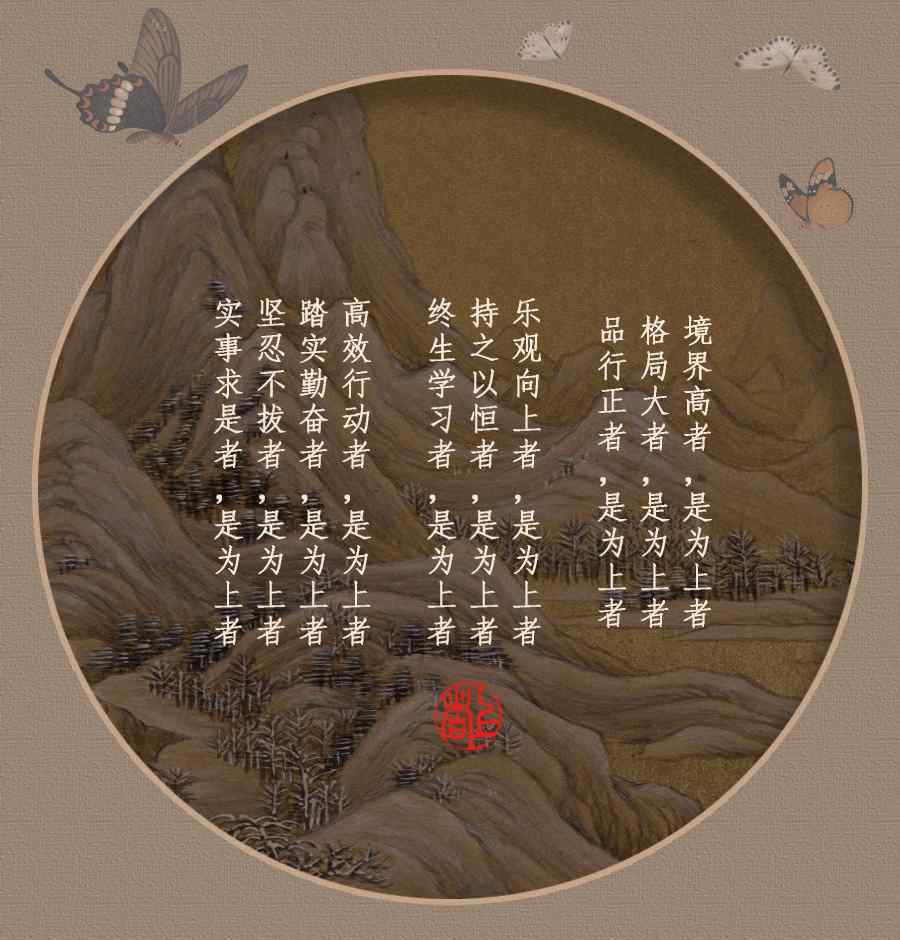 境界高者，是为上者
格局大者，是为上者
品行正者，是为上者
乐观向上者，是为上者
持之以恒者，是为上者
终生学习者，是为上者
高效行动者，是为上者
踏实勤奋者，是为上者
坚忍不拔者，是为上者
实事求是者，是为上者